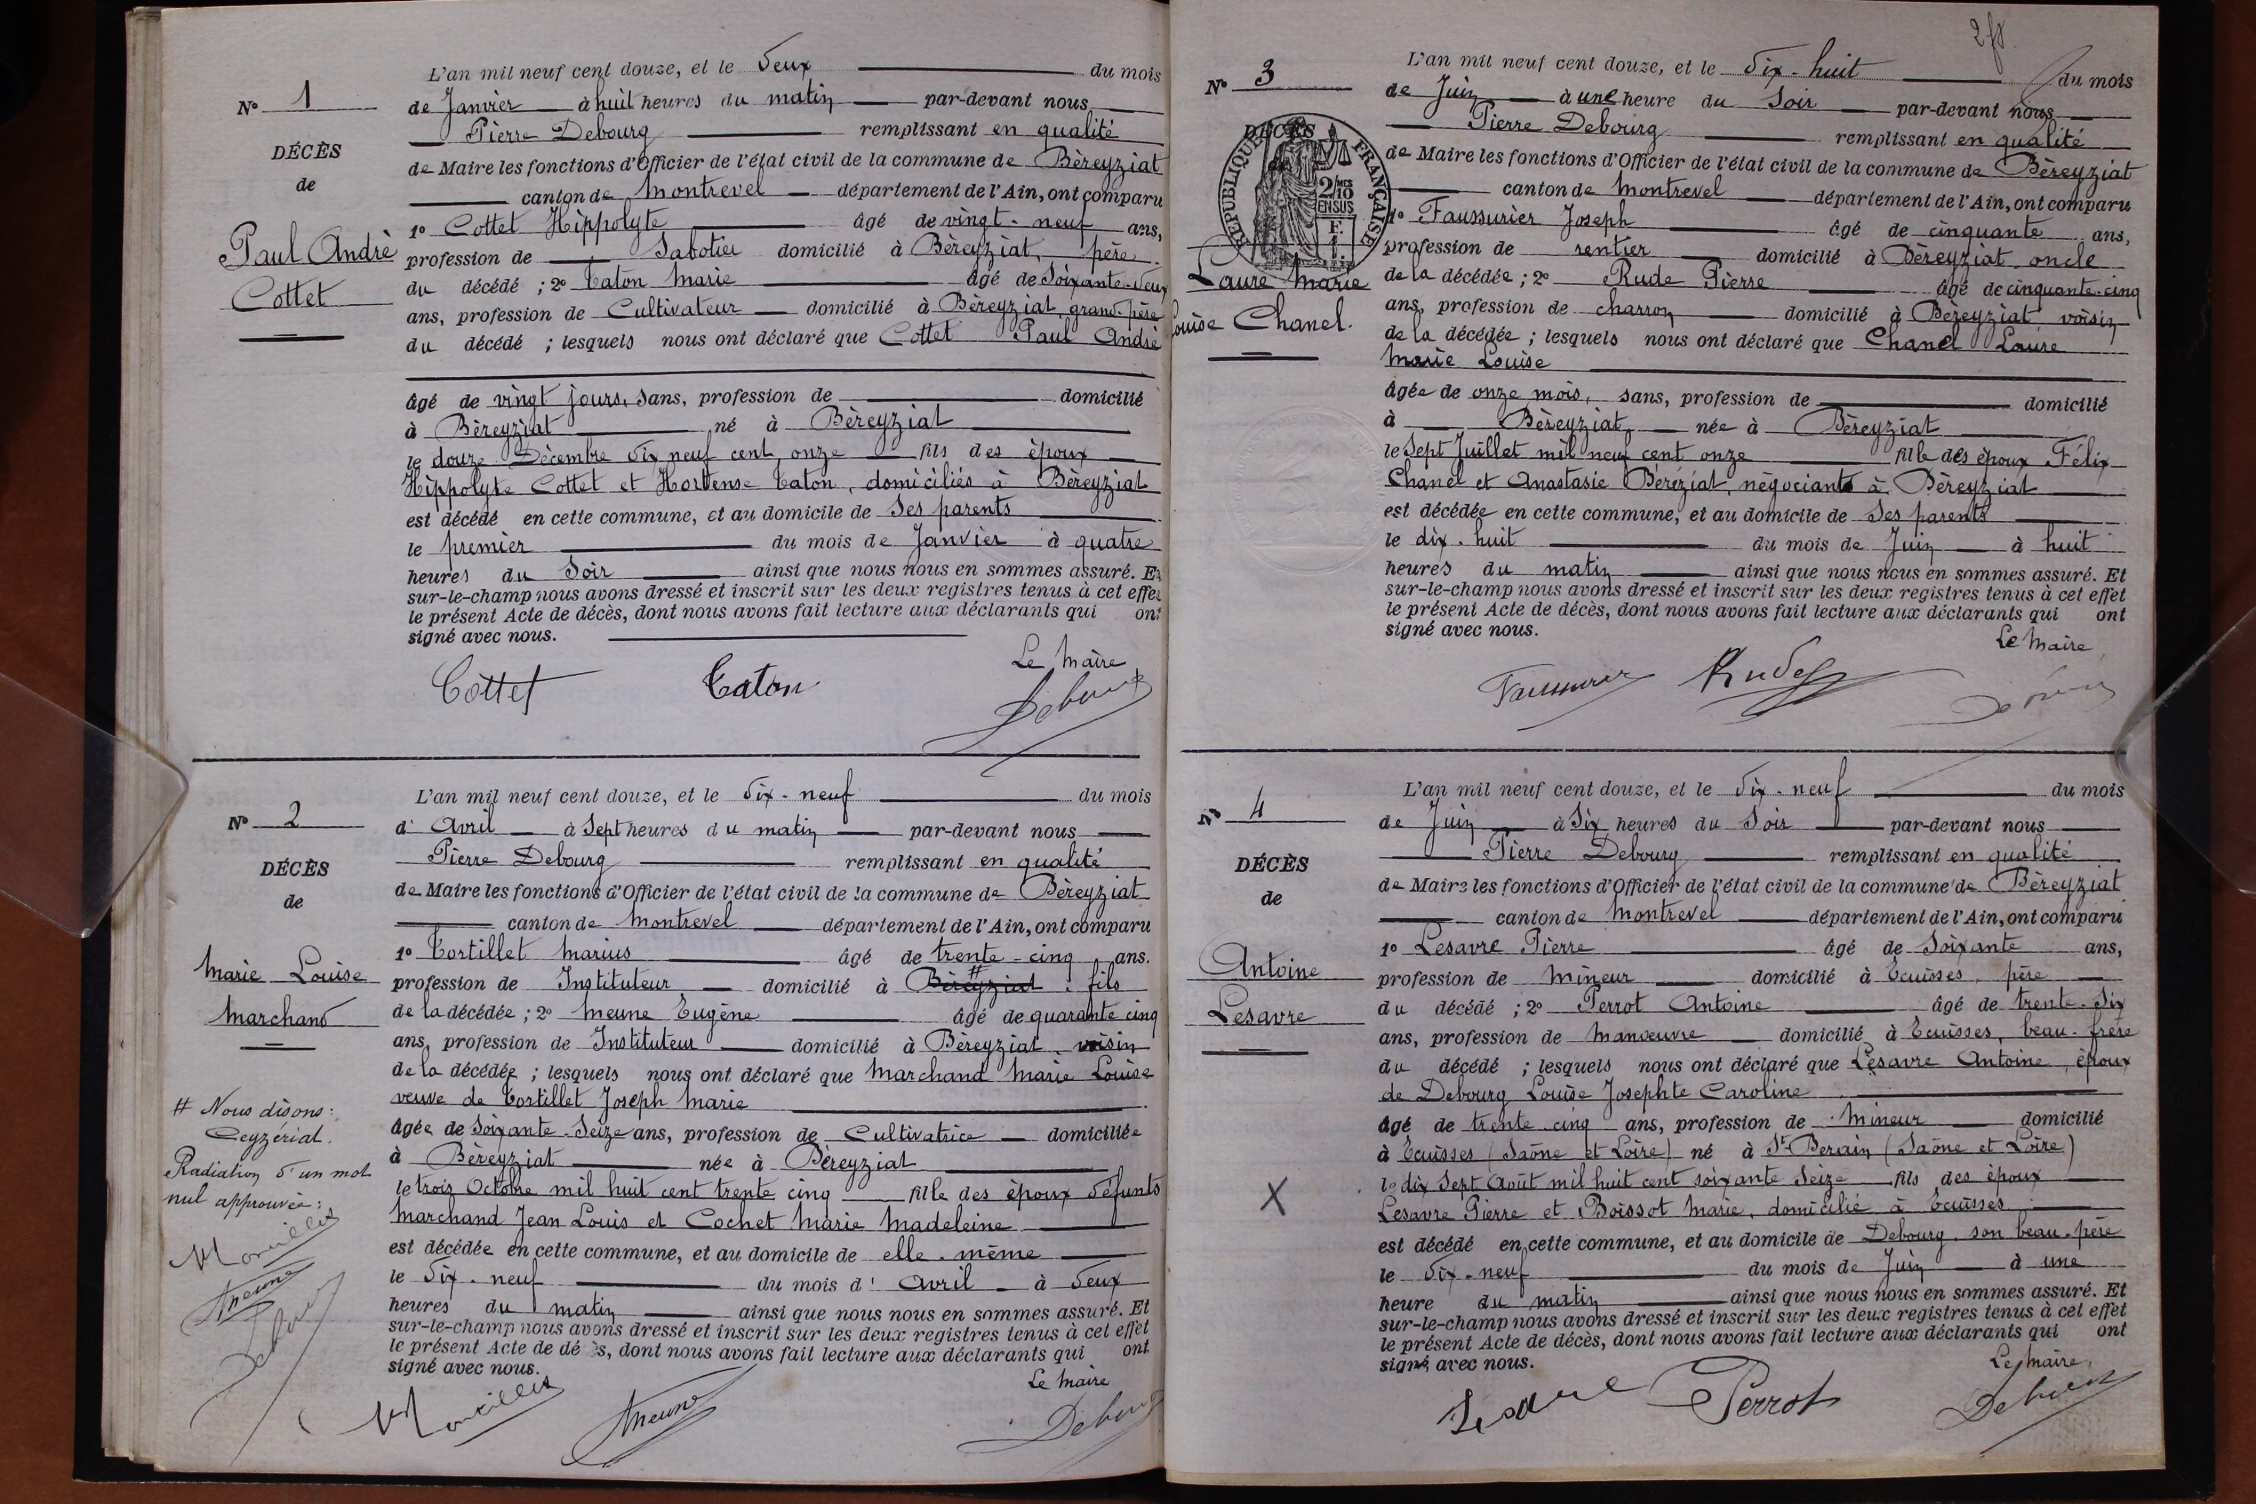 N° 1
DÉCÈS
de
Paul André
Cottet
L'an mil neuf cent douze, et le deux du mois
de Janvier à huit heures du matin par-devant nous
Pierre Debourg remplissant en qualité
de Maire les fonctions d'Officier de l'état civil de la commune de Bèreyziat
canton de Montrevel département de l'Ain, ont comparu
1° Cottet Hippolyte âgé de vingt-neuf ans,
profession de Sabotier domicilié à Bèreyziat, père
du décédé ; 2° Caton Marie âgé de Soixante-deux
ans, profession de Cultivateur domicilié à Bèreyziat, grand-père
du décédé ; lesquels nous ont déclaré que Cottet Paul André
âgé de vingt jours, sans, profession de domicilié
à Bèreyziat né à Bèreyziat
le douze Décembre dix neuf cent onze fils des époux
Hippolyte Cottet et Hortense Caton, domiciliés à Bèreyziat
est décédé en cette commune, et au domicile de Ses parents
le premier du mois de Janvier à quatre
heures du Soir ainsi que nous nous en sommes assuré. Et
sur-le-champ nous avons dressé et inscrit sur les deux registres tenus à cet effet
le présent Acte de décès, dont nous avons fait lecture aux déclarants qui ont
signé avec nous.
Le Maire
Cottet Caton Debourg
N° 2
DÉCÈS
de
Marie Louise
Marchand
# Nous disons:
Ceyzériat.
Radiation d'un mot
nul approuvée:
L'an mil neuf cent douze, et le dix-neuf du mois
d' Avril à Sept heures du matin par-devant nous
Pierre Debourg remplissant en qualité
de Maire les fonctions d'Officier de l'état civil de la commune de Bèreyziat
canton de Montrevel département de l'Ain, ont comparu
1° Tortillet Marius âgé de trente-cinq ans.
profession de Instituteur domicilié à Bèreyziat # fils
de la décédée ; 2° Meune Eugène âgé de quarante cinq
ans, profession de Instituteur domicilié à Bèreyziat, voisin
de la décédée ; lesquels nous ont déclaré que Marchand Marie Louise
veuve de Tortillet Joseph Marie
âgée de Soixante-Seize ans, profession de Cultivatrice domiciliée
à Bèreyziat née à Bèreyziat
le trois Octobre mil huit cent trente cinq fille des époux défunts
Marchand Jean Louis et Cochet Marie Madeleine
est décédée en cette commune, et au domicile de elle-même
le dix-neuf du mois d' Avril à deux
heures du matin ainsi que nous nous en sommes assuré. Et
sur-le-champ nous avons dressé et inscrit sur les deux registres tenus à cet effet
le présent Acte de décès, dont nous avons fait lecture aux déclarants qui ont
signé avec nous.
Le Maire
Meune Debourg
N° 3
DÉCÈS
RÉPUBLIQUE FRANÇAISE
2/10 MES
EN SUS
Laure Marie
Louise Chanel.
L'an mil neuf cent douze, et le dix-huit du mois
de Juin à une heure du Soir par-devant nous
Pierre Debourg remplissant en qualité
de Maire les fonctions d'Officier de l'état civil de la commune de Bèreyziat
canton de Montrevel département de l'Ain, ont comparu
1° Faussurier Joseph âgé de cinquante ans,
profession de rentier domicilié à Bèreyziat oncle
de la décédée ; 2° Rude Pierre âgé de cinquante-cinq
ans, profession de charron domicilié à Bèreyziat voisin
de la décédée ; lesquels nous ont déclaré que Chanel Laure
Marie Louise
âgée de onze mois, sans, profession de domicilié
à Bèreyziat née à Bèreyziat
le Sept Juillet mil neuf cent onze fille des époux Félix
Chanel et Anastasie Béréziat, négociants à Bèreyziat
est décédée en cette commune, et au domicile de Ses parents
le dix-huit du mois de Juin à huit
heures du matin ainsi que nous nous en sommes assuré. Et
sur-le-champ nous avons dressé et inscrit sur les deux registres tenus à cet effet
le présent Acte de décès, dont nous avons fait lecture aux déclarants qui ont
signé avec nous.
Le Maire
Faussurier Rude Debourg
N° 4
DÉCÈS
de
Antoine
Lesavre
X
L'an mil neuf cent douze, et le dix-neuf du mois
de Juin à Six heures du Soir par-devant nous
Pierre Debourg remplissant en qualité
de Maire les fonctions d'Officier de l'état civil de la commune de Bèreyziat
canton de Montrevel département de l'Ain, ont comparu
1° Lesavre Pierre âgé de Soixante ans,
profession de Mineur domicilié à Ecuisses, père
du décédé ; 2° Perrot Antoine âgé de trente-Six
ans, profession de Manœuvre domicilié à Ecuisses, beau-frère
du décédé ; lesquels nous ont déclaré que Lesavre Antoine, époux
de Debourg Louise Josephte Caroline
âgé de trente cinq ans, profession de Mineur domicilié
à Ecuisses (Saône et Loire) né à St Berain (Saône et Loire)
le dix Sept Août mil huit cent soixante Seize fils des époux
Lesavre Pierre et Boissot Marie, domicilié à Ecuisses
est décédé en cette commune, et au domicile de Debourg son beau-père
le dix-neuf du mois de Juin à une
heure du matin ainsi que nous nous en sommes assuré. Et
sur-le-champ nous avons dressé et inscrit sur les deux registres tenus à cet effet
le présent Acte de décès, dont nous avons fait lecture aux déclarants qui ont
signé avec nous.
Le Maire,
Lesavre Perrot Debourg